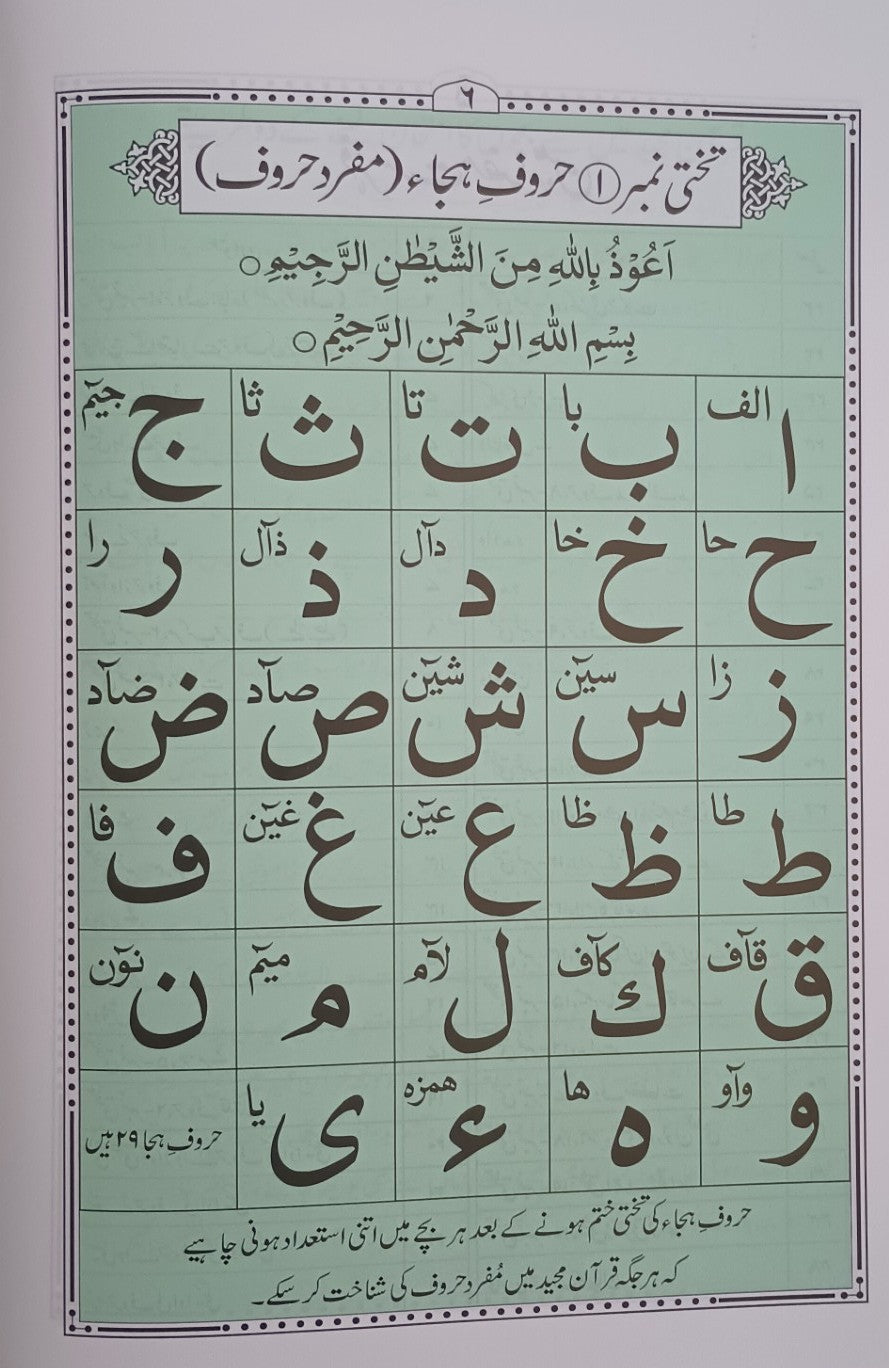 ٦
تختی نمبر ① حروفِ ہجاء (مفرد حروف)
اَعُوْذُ بِاللّٰهِ مِنَ الشَّيْطٰنِ الرَّجِيْمِ ○
بِسْمِ اللّٰهِ الرَّحْمٰنِ الرَّحِيْمِ ○
ا الف ب با ت تا ث ثا ج جیٓم
ح حا خ خا د دآل ذ ذآل ر را
ز زا س سیٓن ش شیٓن ص صآد ض ضآد
ط طا ظ ظا ع عیٓن غ غیٓن ف فا
ق قآف ك کآف ل لآم م میٓم ن نوٓن
و وآو ه ها ء همزہ ی یا حروفِ ہجا ۲۹ ہیں
حروفِ ہجاء کی تختی ختم ہونے کے بعد ہر بچے میں اتنی استعداد ہونی چاہیے
کہ ہر جگہ قرآن مجید میں مُفرد حروف کی شناخت کر سکے۔